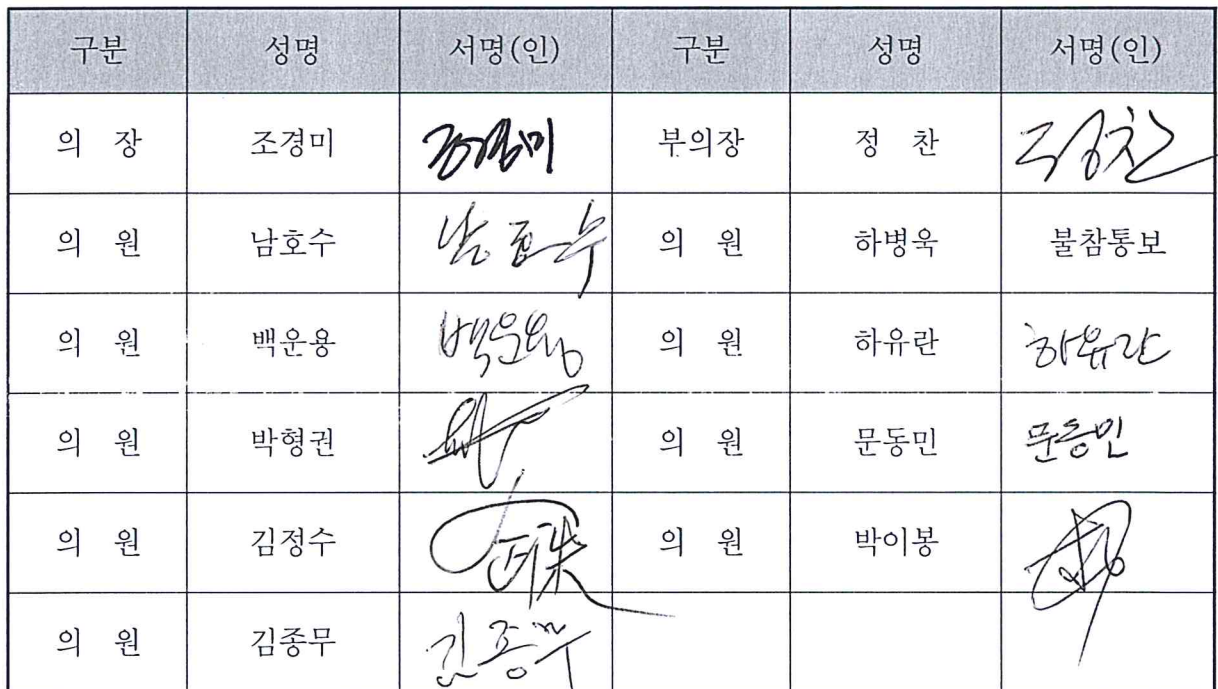 구분 성명 서명(인) 구분 성명 서명(인)
의 장 조경미 조경미 부의장 정 찬 정찬
의 원 남호수 남호수 의 원 하병욱 불참통보
의 원 백운용 백운용 의 원 하유란 하유란
의 원 박형권 의 원 문동민 문동민
의 원 김정수 의 원 박이봉
의 원 김종무 김종무